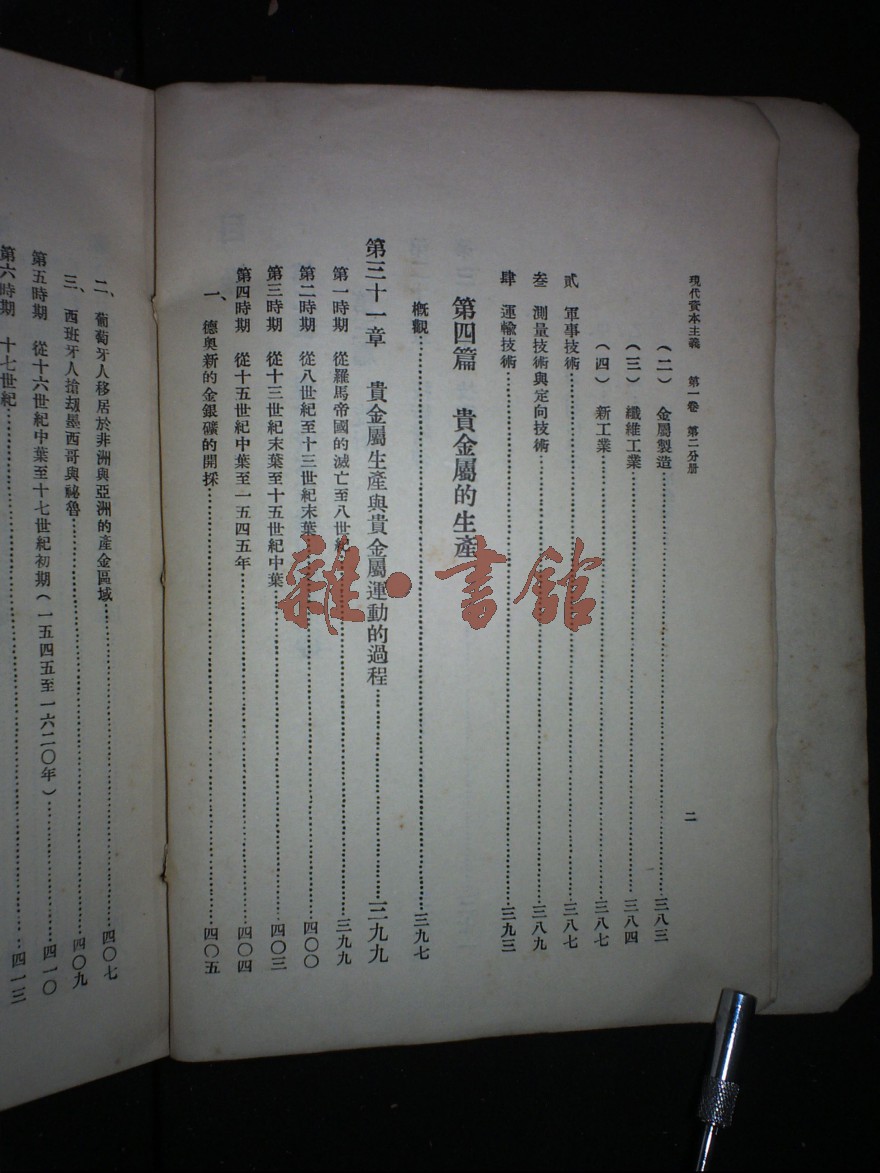 現代資本主義　第一卷　第二分册
二
（二）　金屬製造……三八三
（三）　纖維工業……三八四
（四）　新工業……三八七
貳　軍事技術……三八七
叁　測量技術與定向技術……三八九
肆　運輸技術……三九三
第四篇　貴金屬的生產
概觀……三九七
第三十一章　貴金屬生產與貴金屬運動的過程……三九九
第一時期　從羅馬帝國的滅亡至八世紀……三九九
第二時期　從八世紀至十三世紀末葉……四〇〇
第三時期　從十三世紀末葉至十五世紀中葉……四〇三
第四時期　從十五世紀中葉至一五四五年……四〇四
一、　德奧新的金銀礦的開採……四〇五
二、　葡萄牙人移居於非洲與亞洲的產金區域……四〇七
三、　西班牙人搶刼墨西哥與祕魯……四〇九
第五時期　從十六世紀中葉至十七世紀初期（一五四五至一六二〇年）……四一〇
第六時期　十七世紀……四一三
雜·書館